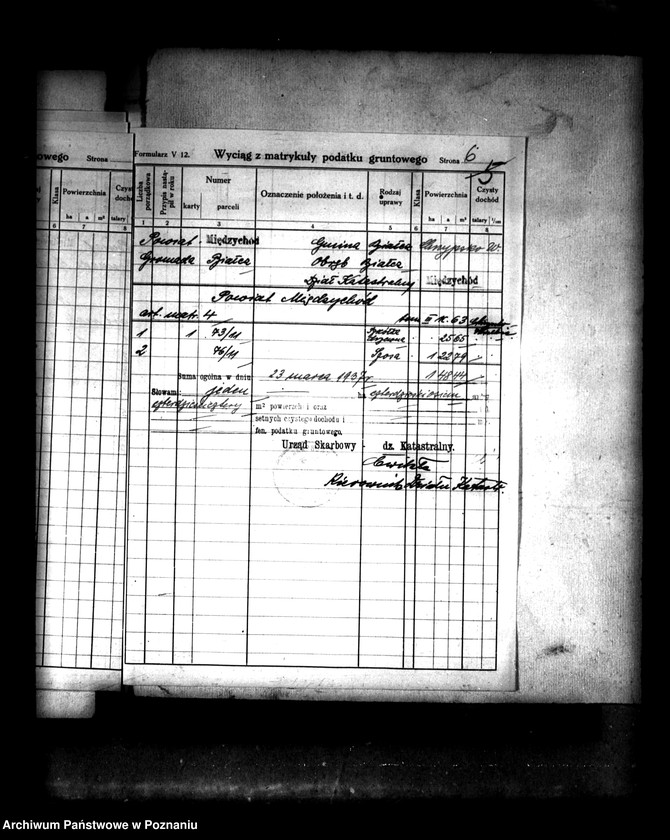 owego Strona
Klasa Powierzchnia Czys doch
ha a m² talary
6 7
Formularz V 12. Wyciąg z matrykuły podatku gruntowego Strona 6
5
Liczba porządkowa Przypis nastąpił w roku Numer karty parceli Oznaczenie położenia i t. d. Rodzaj uprawy Klasa Powierzchnia ha a m² Czysty dochód talary 1/100
1 2 3 4 5 6 7 8
Powiat Międzychód Gmina Białcz
Gromada Białcz Obręb Białcz
Dział Katastralny Międzychód
Powiat Międzychód
art. matr. 4 tom II k. 63
1 1 73/11 2565
2 76/11 1 2279
Suma ogólna w dniu 23 marca 1937 r. 1 4844
Słowami: jeden ha czterdzieściosiem
czterdzieścicztery m² powierzchni oraz
setnych czystego dochodu i
fen. podatku gruntowego.
Urząd Skarbowy - dz. Katastralny.
Kierownik Działu Katastr.
Archiwum Państwowe w Poznaniu